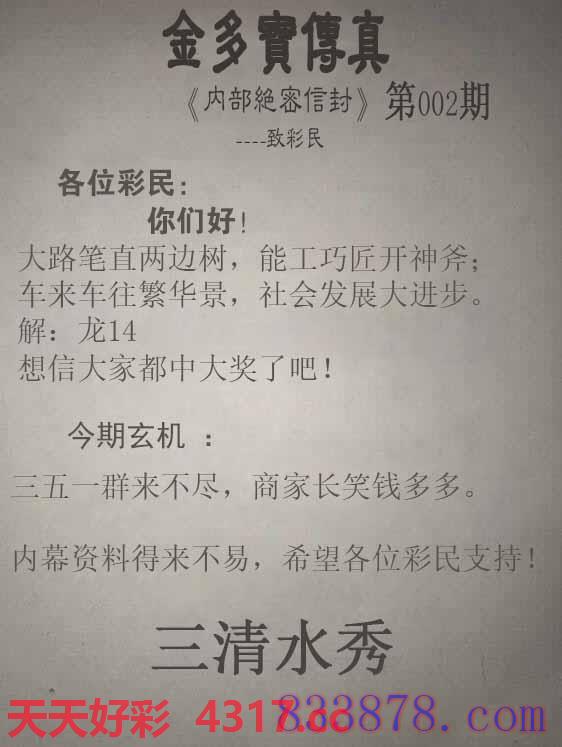 金多寶傳真
《内部絶密信封》第002期
----致彩民
各位彩民：
你们好！
大路笔直两边树，能工巧匠开神斧；
车来车往繁华景，社会发展大进步。
解：龙14
想信大家都中大奖了吧！
今期玄机 ：
三五一群来不尽，商家长笑钱多多。
内幕资料得来不易，希望各位彩民支持！
三清水秀
天天好彩 4317.cc
833878.com